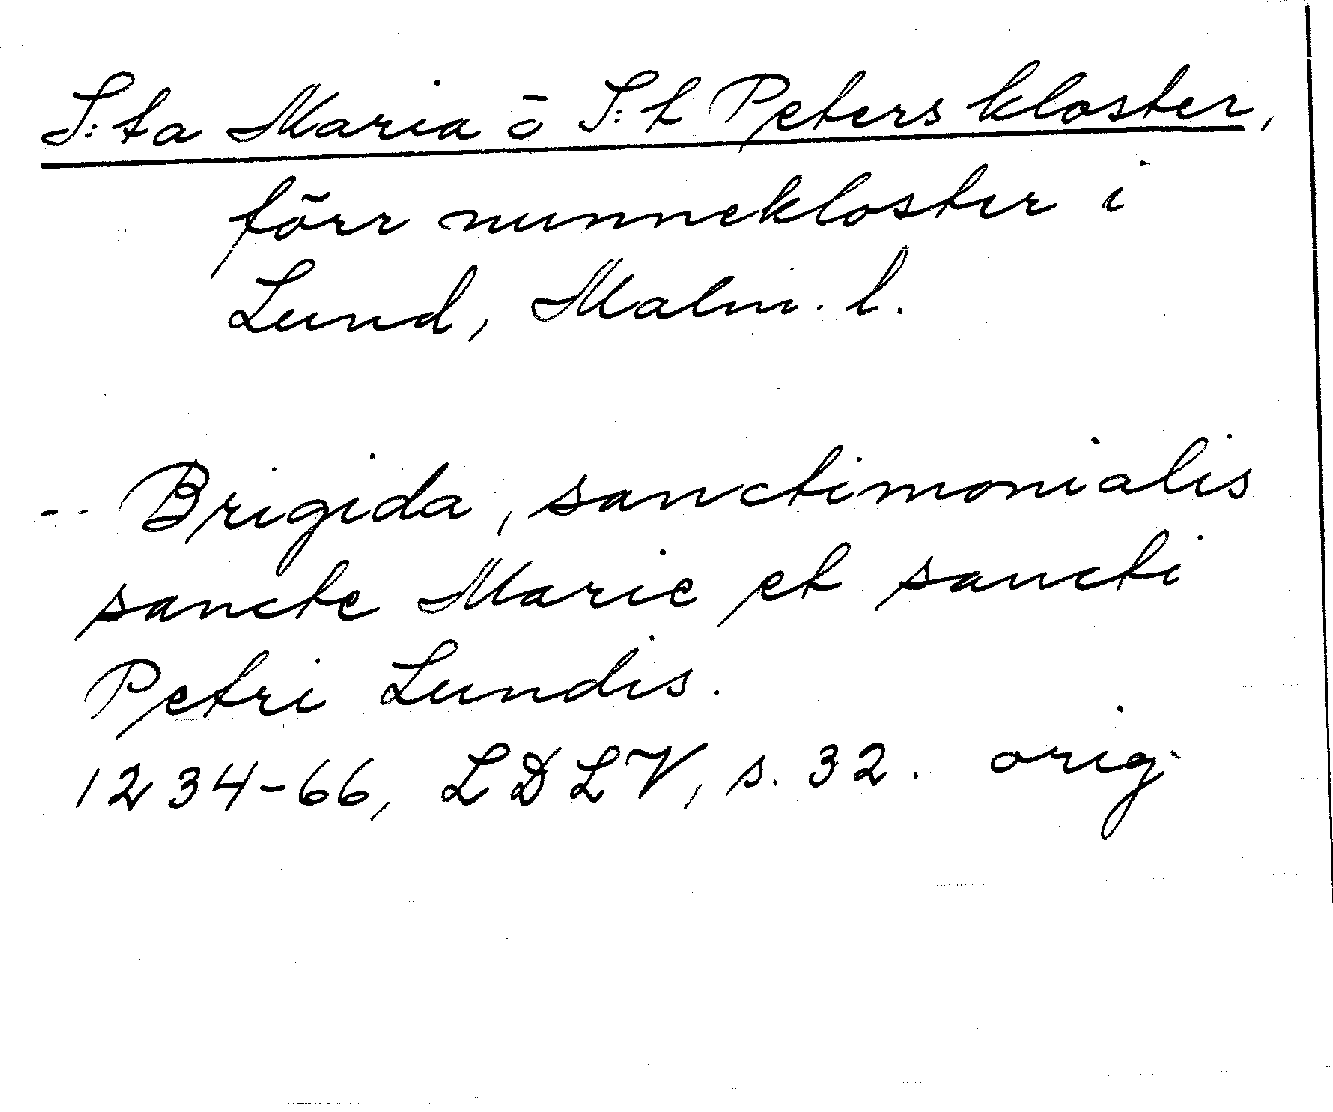 S:ta Maria o S:t Peters kloster,
förr nunnekloster i
Lund, Malm. l.
-- Brigida, sanctimonialis
sancte Marie et sancti
Petri Lundis.
1234-66, LDLV, s. 32. orig.